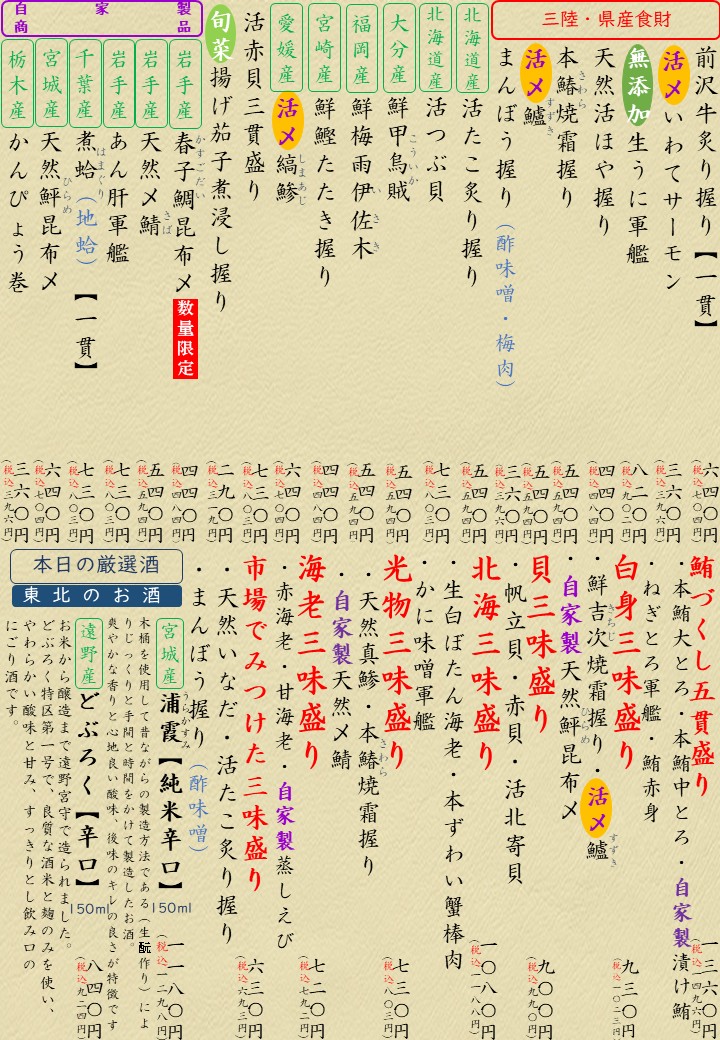 三陸・県産食財
前沢牛炙り握り【一貫】 六四〇円(税込七〇四円)
活〆いわてサーモン 三六〇円(税込三九六円)
無添加生うに軍艦 八二〇円(税込九〇二円)
天然活ほや握り 四四〇円(税込四八四円)
本鰆焼霜握り さわら 五四〇円(税込五九四円)
活〆鱸 すずき 五四〇円(税込五九四円)
まんぼう握り(酢味噌・梅肉) 三六〇円(税込三九六円)
北海道産 活たこ炙り握り 五四〇円(税込五九四円)
北海道産 活つぶ貝 七三〇円(税込八〇三円)
大分産 鮮甲烏賊 こういか 五四〇円(税込五九四円)
福岡産 鮮梅雨伊佐木 いさき 五四〇円(税込五九四円)
宮崎産 鮮鰹たたき握り 四四〇円(税込四八四円)
愛媛産 活〆縞鯵 しまあじ 六四〇円(税込七〇四円)
活赤貝三貫盛り 七三〇円(税込八〇三円)
旬菜揚げ茄子煮浸し握り 二九〇円(税込三一九円)
自家製商品
岩手産 春子鯛昆布〆 かすごだい 数量限定 四四〇円(税込四八四円)
岩手産 天然〆鯖 さば 五四〇円(税込五九四円)
岩手産 あん肝軍艦 七三〇円(税込八〇三円)
千葉産 煮蛤(地蛤)【一貫】 はまぐり 七三〇円(税込八〇三円)
宮城産 天然鮃昆布〆 ひらめ 六四〇円(税込七〇四円)
栃木産 かんぴょう巻 三六〇円(税込三九六円)
鮪づくし五貫盛り 一三六〇円(税込一四九六円)
・本鮪大とろ・本鮪中とろ・自家製漬け鮪
・ねぎとろ軍艦・鮪赤身
白身三味盛り 九三〇円(税込一〇二三円)
・鮮吉次焼霜握り・活〆鱸 きちじ すずき
・自家製天然鮃昆布〆 ひらめ
貝三味盛り 九〇〇円(税込九九〇円)
・帆立貝・赤貝・活北寄貝
北海三味盛り 一〇八〇円(税込一一八八円)
・生白ぼたん海老・本ずわい蟹棒肉
・かに味噌軍艦
光物三味盛り 七三〇円(税込八〇三円)
・天然真鯵・本鰆焼霜握り さわら
・自家製天然〆鯖
海老三味盛り 七二〇円(税込七九二円)
・赤海老・甘海老・自家製蒸しえび
市場でみつけた三味盛り 六三〇円(税込六九三円)
・天然いなだ・活たこ炙り握り
・まんぼう握り(酢味噌)
本日の厳選酒
東北のお酒
宮城産 浦霞【純米辛口】 うらかすみ 150ml 一一八〇円(税込一二九八円)
木桶を使用して昔ながらの製造方法である(生酛作り)によ
りじっくりと手間と時間をかけて製造したお酒。
爽やかな香りと心地良い酸味、後味のキレの良さが特徴です
遠野産 どぶろく【辛口】 150ml 八四〇円(税込九二四円)
お米から醸造まで遠野宮守で造られました。
どぶろく特区第一号で、良質な酒米と麹のみを使い、
やわらかい酸味と甘み、すっきりとし飲み口の
にごり酒です。